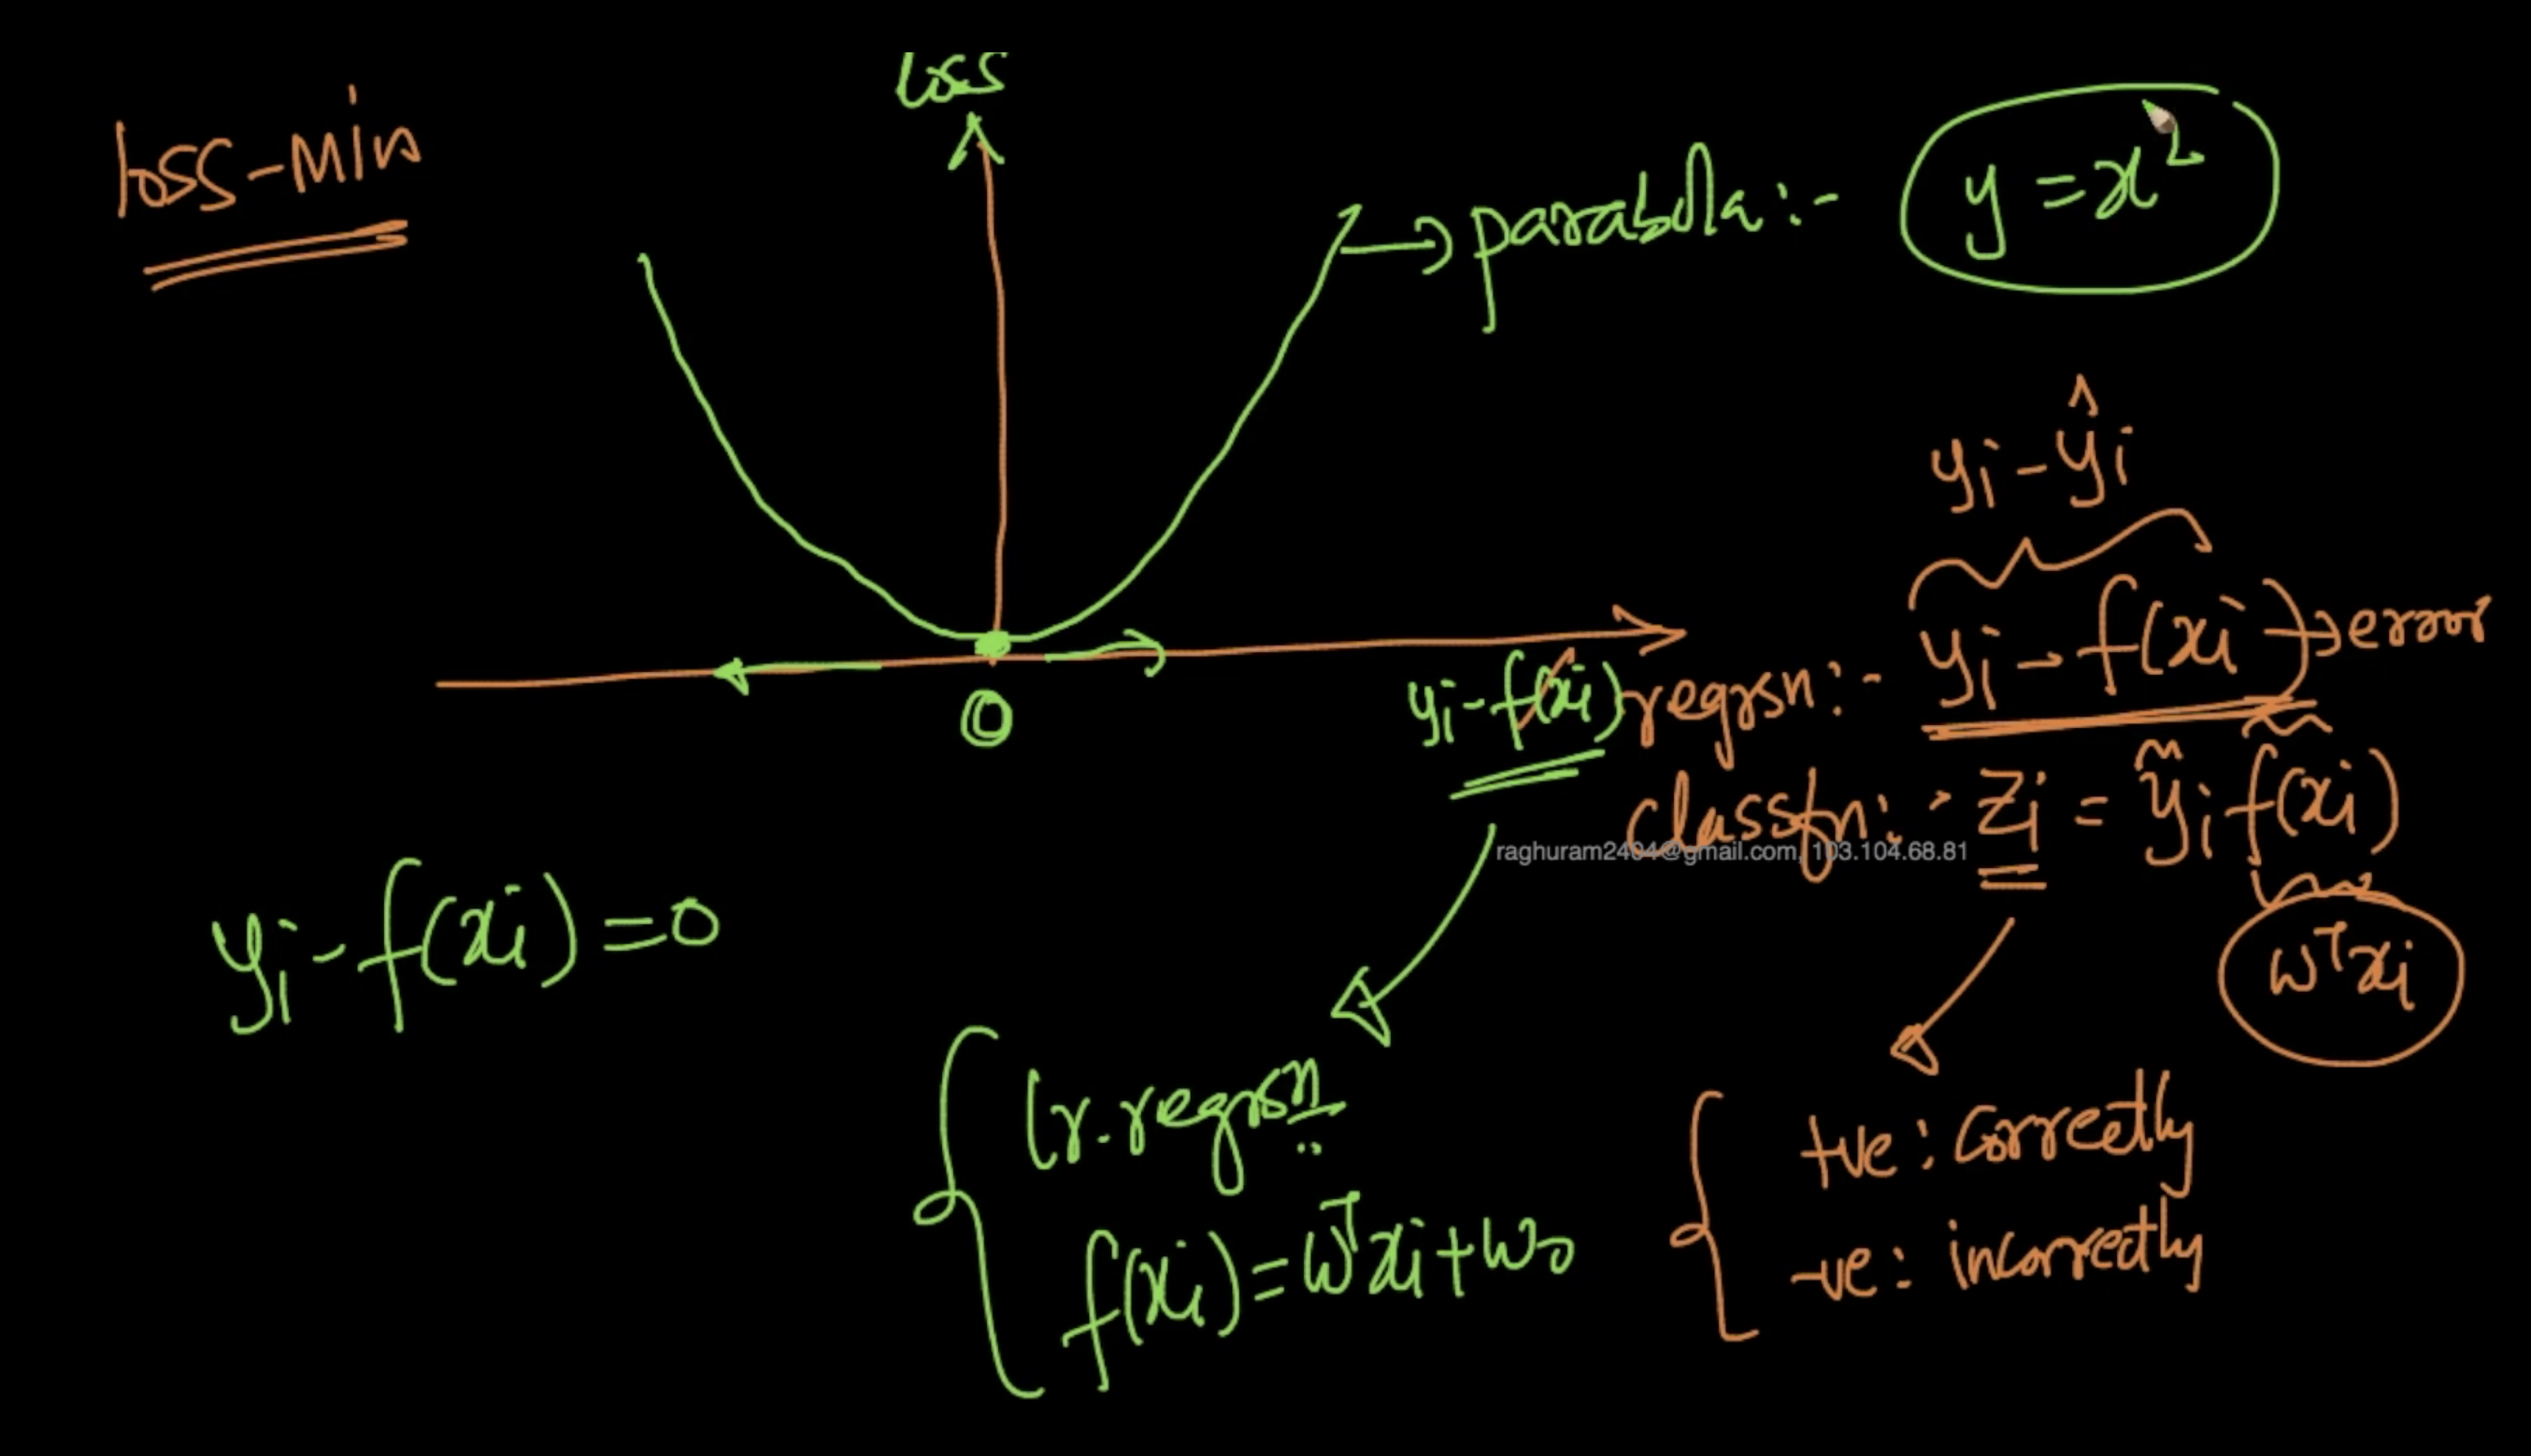 loss
loss-min
parabola:- y = x²
yi - ŷi
yi - f(xi) → error
yi - f(xi)
regrsn:-
classfn:- zi = yi f(xi)
raghuram2404@gmail.com, 103.104.68.81
0
yi - f(xi) = 0
wᵀxi
lr. regrsn
f(xi) = wᵀxi + w0
+ve: correctly
-ve: incorrectly